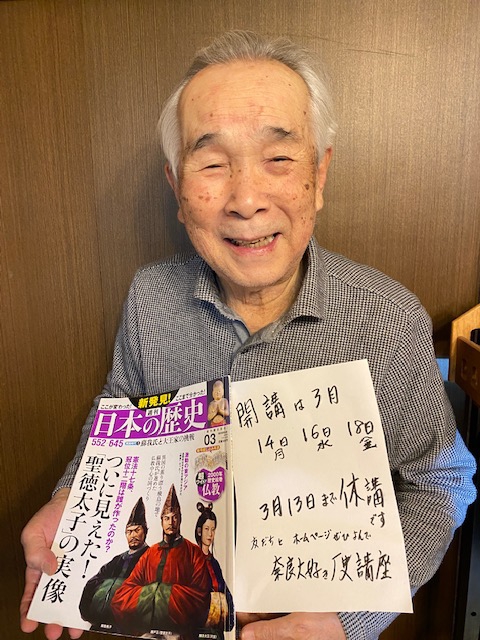 新発見!
ここが変わった!
ここまで分かった!
週刊
日本の歴史
552▶645
蘇我氏と大王家の挑戦
03
憲法十七条、
冠位十二階は誰が作ったのか?
ついに見えた!
「聖徳太子」の実像
激動の東アジア
仏教
開講は3月
14月 16水 18金
3月13日まで休講
です
友だちと ホームページもひよんで
奈良大好き歴史講座